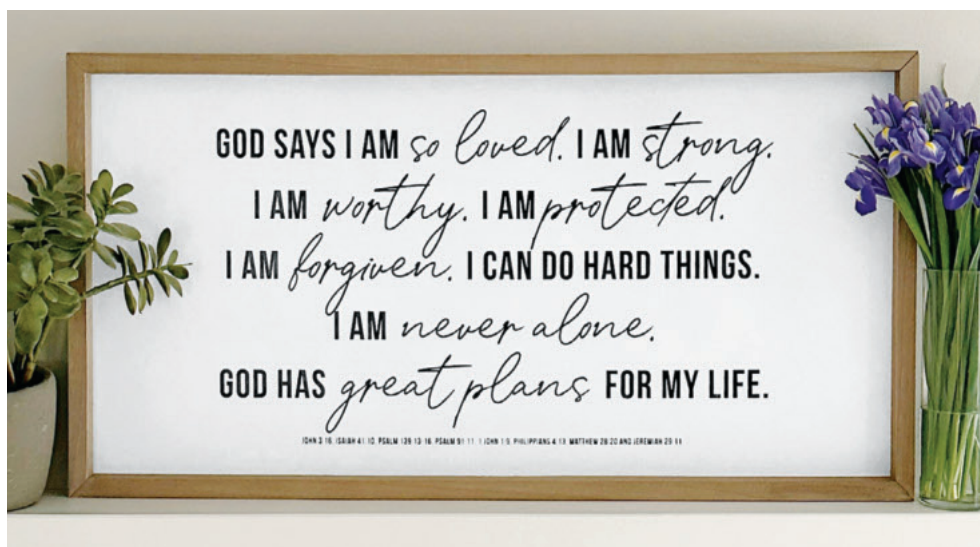 GOD SAYS I AM so loved. I AM strong.
I AM worthy. I AM protected.
I AM forgiven. I CAN DO HARD THINGS.
I AM never alone.
GOD HAS great plans FOR MY LIFE.
JOHN 3:16, ISAIAH 41:10, PSALM 139:13-16, PSALM 91:11, 1 JOHN 1:9, PHILIPPIANS 4:13, MATTHEW 28:20 AND JEREMIAH 29:11